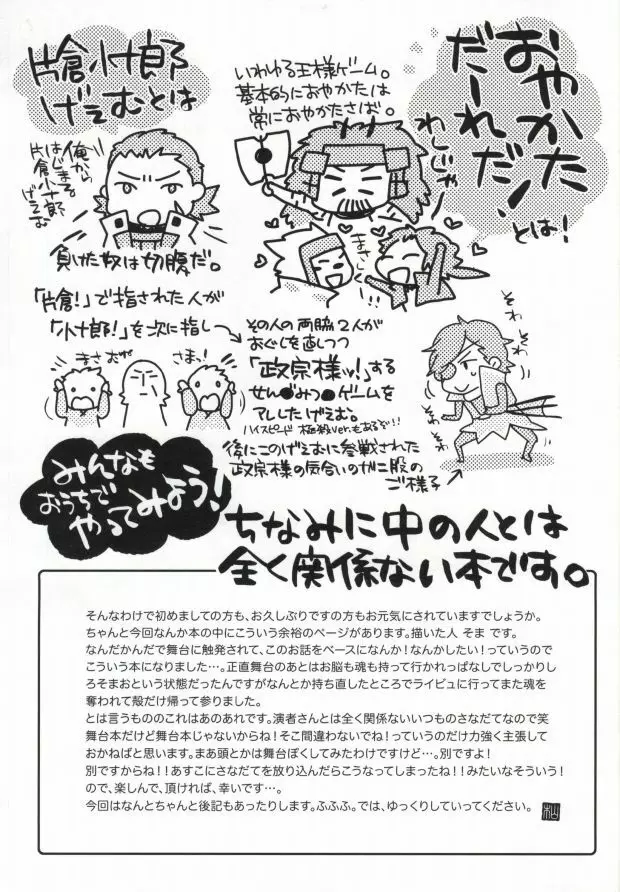 おやかた
だーれだ!
とは!
いわゆる王様ゲーム。
基本的におやかたは
常におやかたさば。
わしじゃー
片倉小十郎
げえむとは
俺から
はじまる
片倉小十郎
げえむ
まさむ
くぅ!!
負けた奴は切腹だ。
「片倉!」で指された人が
「小十郎!」を次に指し
その人の両脇2人が
おぐしを直しつつ
「政宗様ッ!」する
せん●みつ●ゲームを
アレしたげえむ。
ハイスピード 極殺ver.もあるぞ!!
まさむね
さまっ!
そわ
そわ
そわ
そわ
後にこのげえむに参戦された
政宗様の気合いのガニ股の
ご様子
みんなも
おうちで
やってみよう!
ちなみに中の人とは
全く関係ない本です。
そんなわけで初めましての方も、お久しぶりですの方もお元気にされていますでしょうか。
ちゃんと今回なんか本の中にこういう余裕のページがあります。描いた人 そま です。
なんだかんだで舞台に触発されて、このお話をベースになんか!なんかしたい!っていうので
こういう本になりました…。正直舞台のあとはお脳も魂も持って行かれっぱなしでしっかりし
ろそまおという状態だったんですがなんとか持ち直したところでライビュに行ってまた魂を
奪われて殻だけ帰って参りました。
とは言うもののこれはあのあれです。演者さんとは全く関係ないいつものさなだてなので笑
舞台本だけど舞台本じゃないからね!そこ間違わないでね!っていうのだけ力強く主張して
おかねばと思います。まあ頭とかは舞台ぽくしてみたわけですけど…。別ですよ!
別ですからね!!あすこにさなだてを放り込んだらこうなってしまったね!!みたいなそういう!
ので、楽しんで、頂ければ、幸いです…。
今回はなんとちゃんと後記もあったりします。ふふふ。では、ゆっくりしていってください。